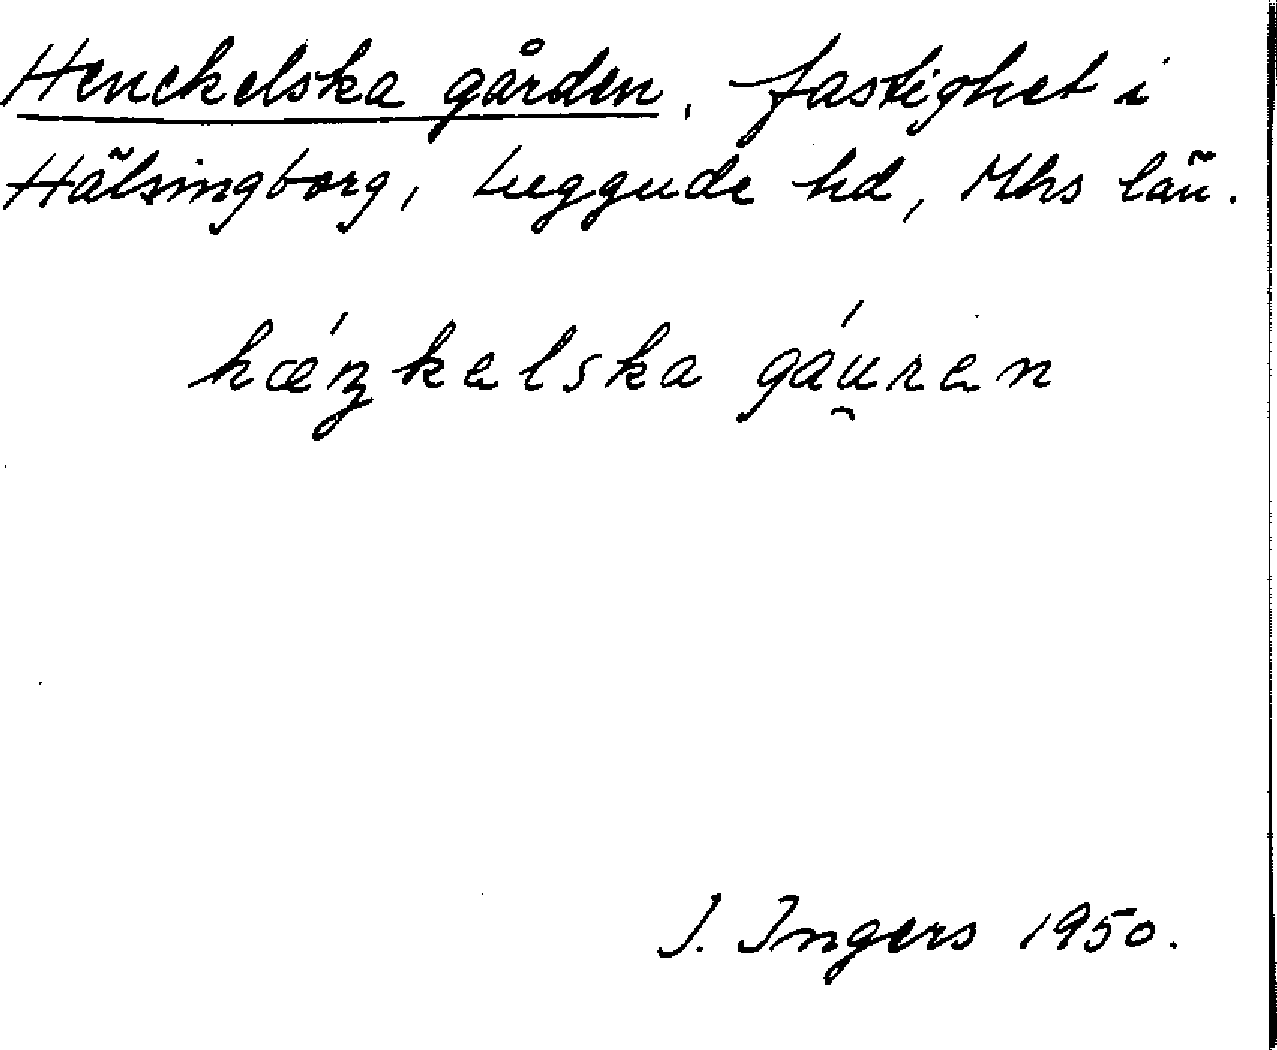 Henckelska gården, fastighet i
Hälsingborg, Luggude hd, Mhs län.
hǽŋkelska gáu̯ren
I. Ingers 1950.